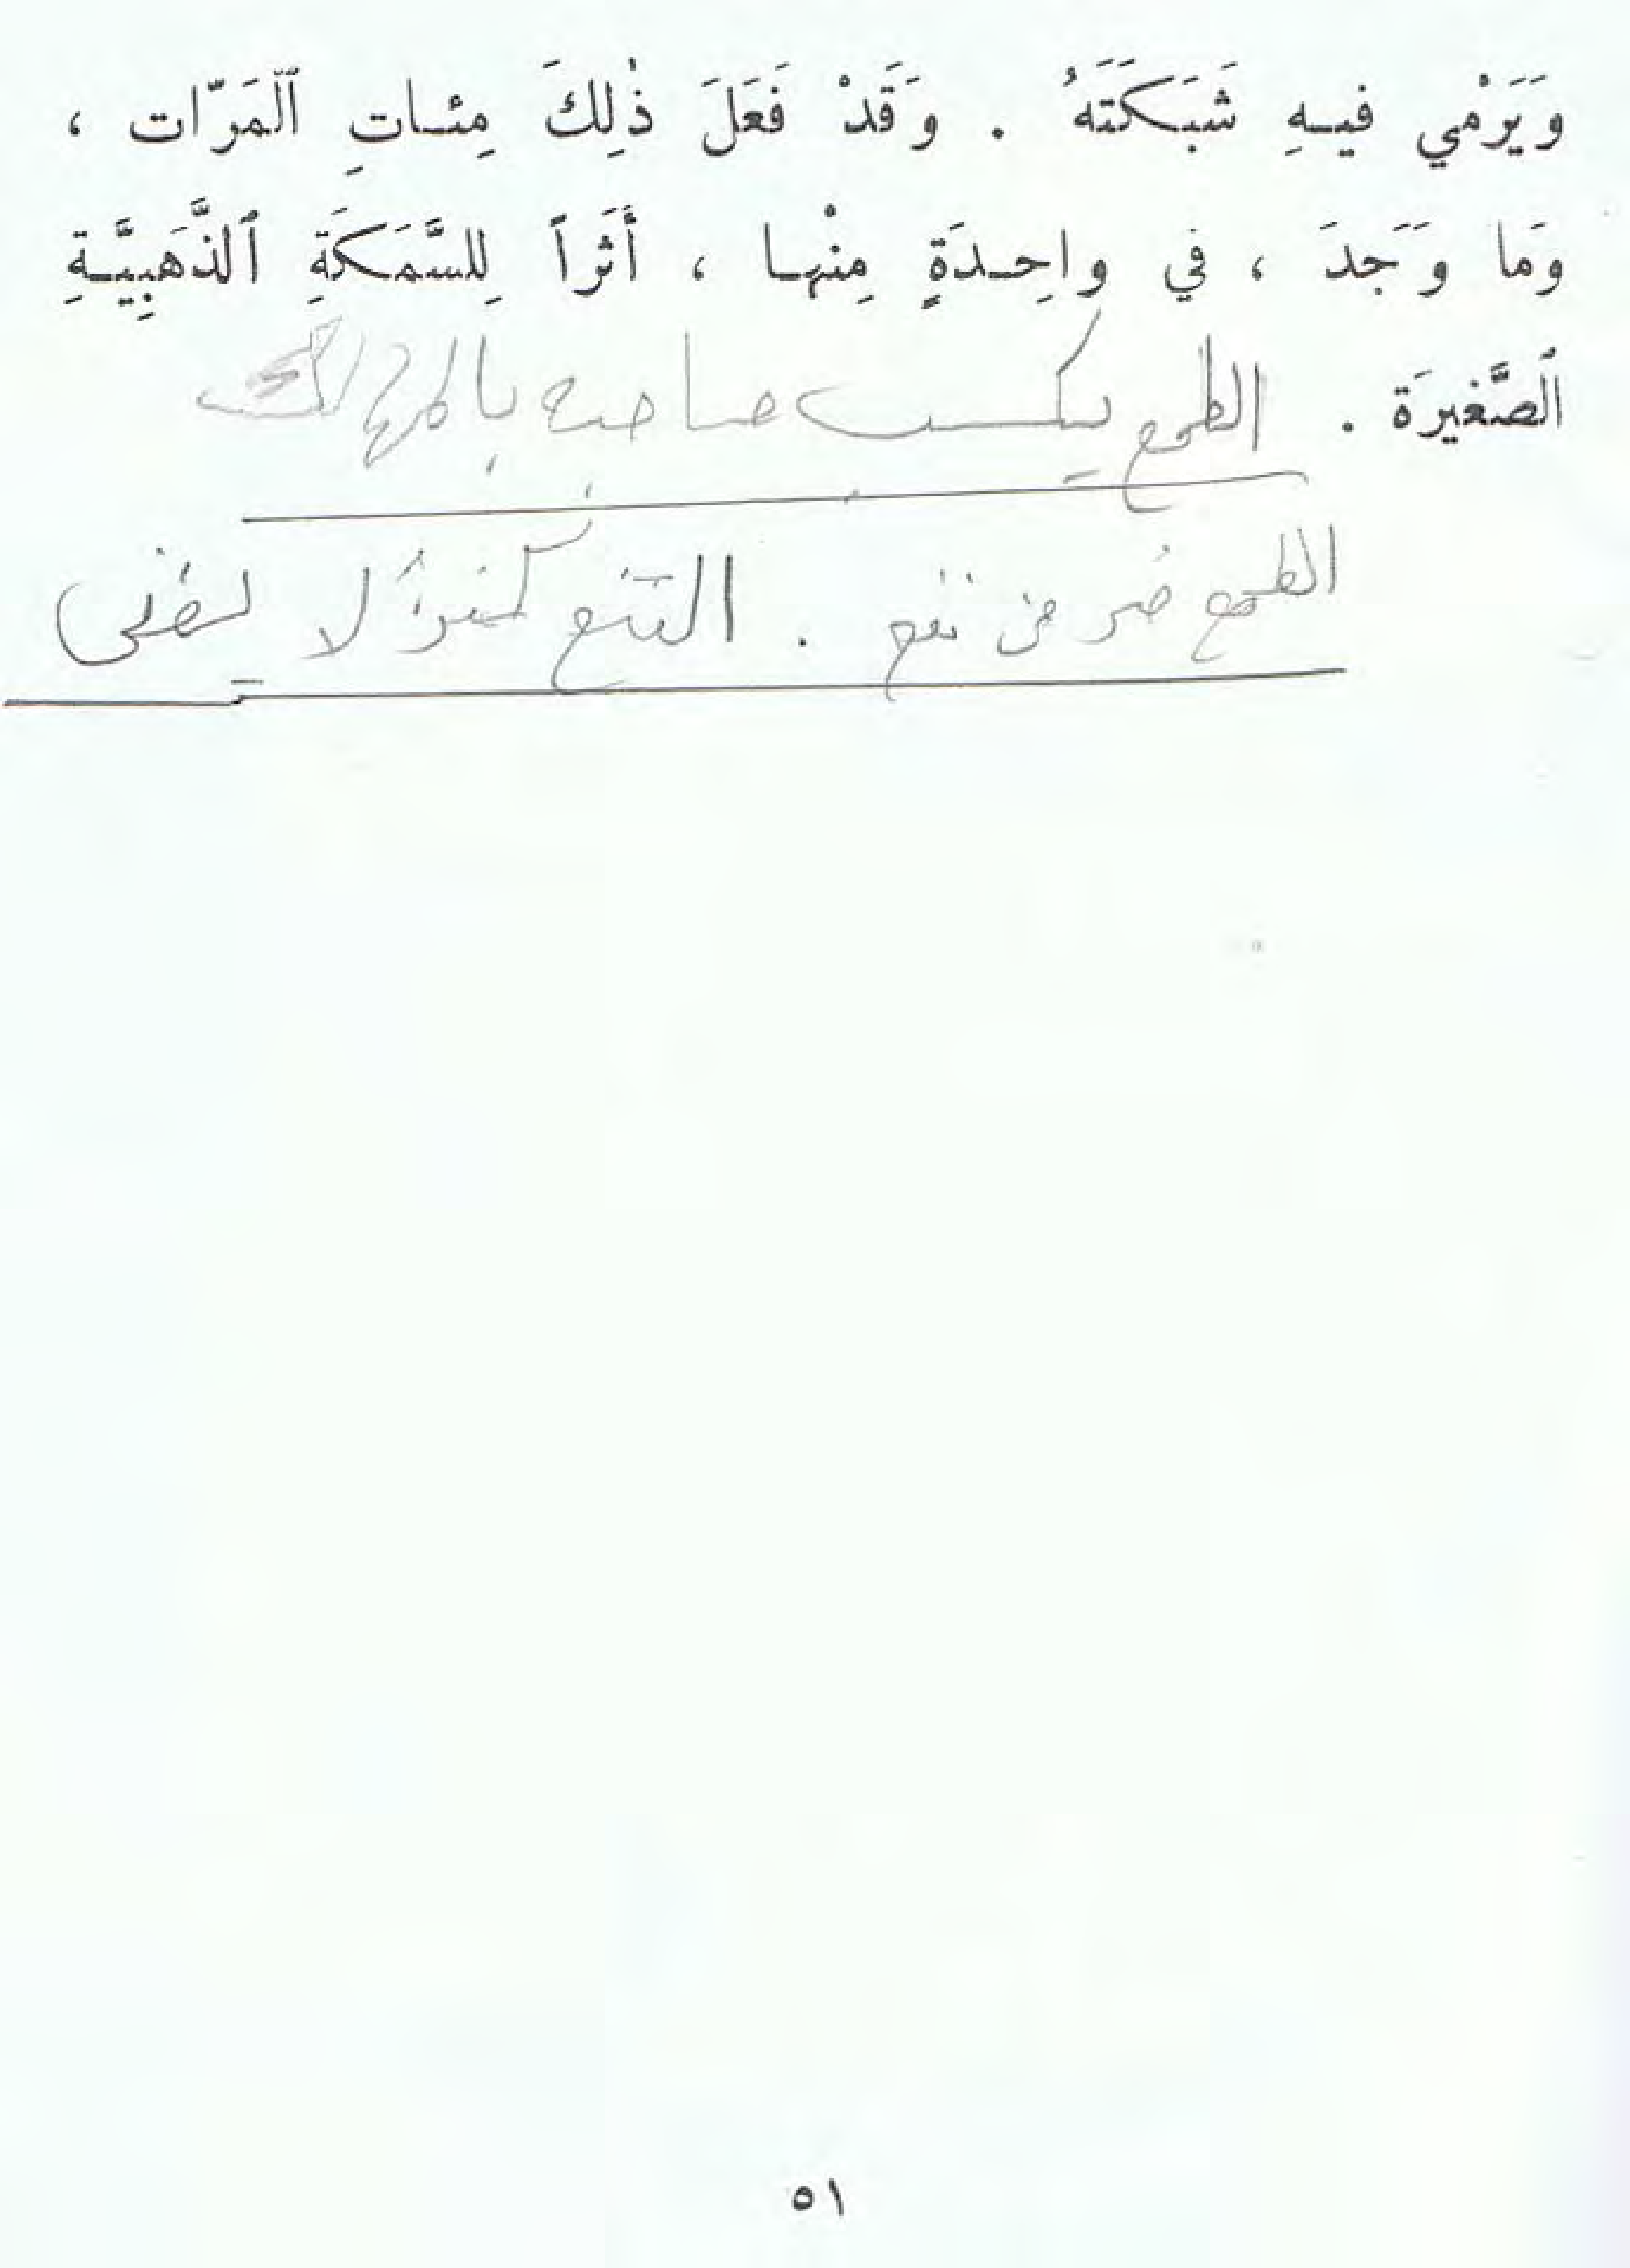 وَيَرْمي فيهِ شَبَكَتَهُ . وَقَدْ فَعَلَ ذٰلِكَ مِئاتِ ٱلْمَرّات ،
وَما وَجَدَ ، في واحِدَةٍ مِنْها ، أَثَراً لِلسَّمَكَةِ ٱلذَّهَبِيَّةِ
ٱلصَّغيرَة . الطمع يكسب صاحبه بالمهالك
الطمع ضر من نفع . القنع كنز لا يفنى
٥١